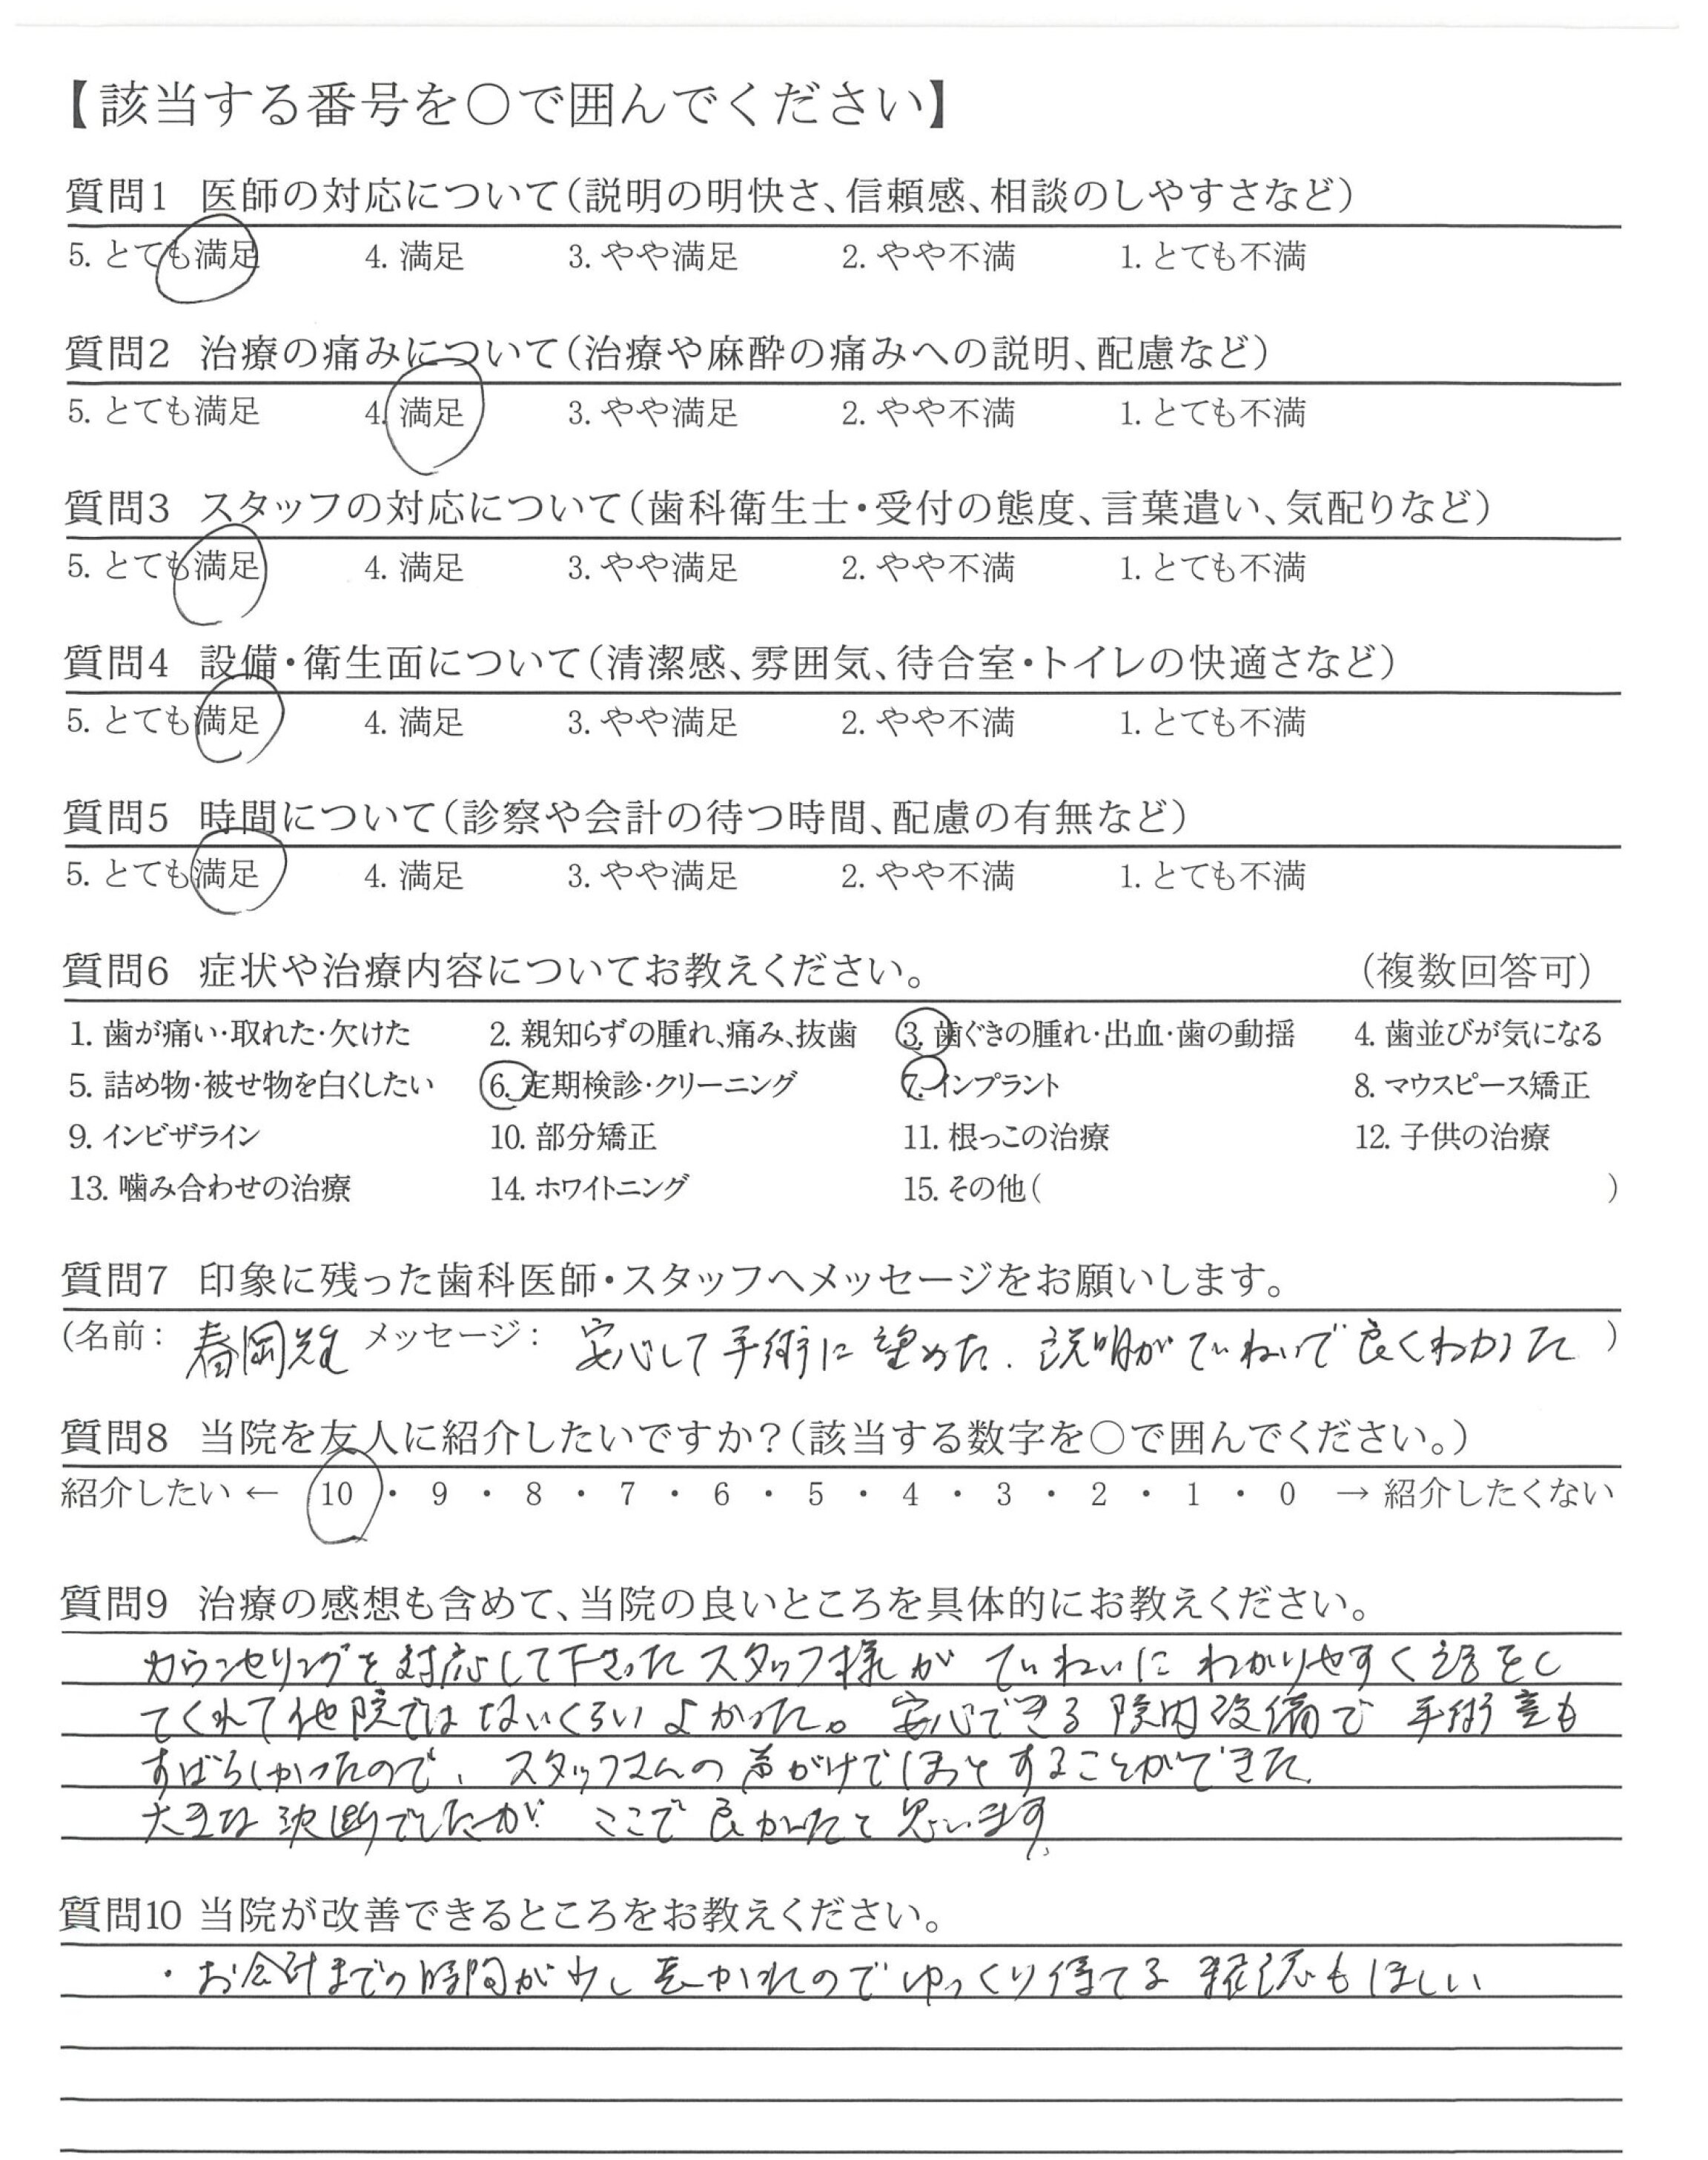 【該当する番号を○で囲んでください】
質問1 医師の対応について(説明の明快さ、信頼感、相談のしやすさなど)
5. とても満足 4. 満足 3. やや満足 2. やや不満 1. とても不満
質問2 治療の痛みについて(治療や麻酔の痛みへの説明、配慮など)
5. とても満足 4. 満足 3. やや満足 2. やや不満 1. とても不満
質問3 スタッフの対応について(歯科衛生士・受付の態度、言葉遣い、気配りなど)
5. とても満足 4. 満足 3. やや満足 2. やや不満 1. とても不満
質問4 設備・衛生面について(清潔感、雰囲気、待合室・トイレの快適さなど)
5. とても満足 4. 満足 3. やや満足 2. やや不満 1. とても不満
質問5 時間について(診察や会計の待つ時間、配慮の有無など)
5. とても満足 4. 満足 3. やや満足 2. やや不満 1. とても不満
質問6 症状や治療内容についてお教えください。 (複数回答可)
1. 歯が痛い・取れた・欠けた 2. 親知らずの腫れ、痛み、抜歯 3. 歯ぐきの腫れ・出血・歯の動揺 4. 歯並びが気になる
5. 詰め物・被せ物を白くしたい 6. 定期検診・クリーニング 7. インプラント 8. マウスピース矯正
9. インビザライン 10. 部分矯正 11. 根っこの治療 12. 子供の治療
13. 噛み合わせの治療 14. ホワイトニング 15. その他( )
質問7 印象に残った歯科医師・スタッフへメッセージをお願いします。
(名前: 春岡先生 メッセージ: 安心して手術に望めた. 説明がていねいで良くわかった )
質問8 当院を友人に紹介したいですか?(該当する数字を○で囲んでください。)
紹介したい ← 10 ・ 9 ・ 8 ・ 7 ・ 6 ・ 5 ・ 4 ・ 3 ・ 2 ・ 1 ・ 0 → 紹介したくない
質問9 治療の感想も含めて、当院の良いところを具体的にお教えください。
カウンセリングを対応して下さったスタッフ様が ていねいに わかりやすく話をし
てくれて他院ではないくらいよかった。安心できる 院内設備で 手術室も
すばらしかったので、スタッフさんの声がけでほっとすることができた
大きな決断でしたが ここで良かったと思います
質問10 当院が改善できるところをお教えください。
・お会計までの時間が少し長かったのでゆっくり待てる もほしい